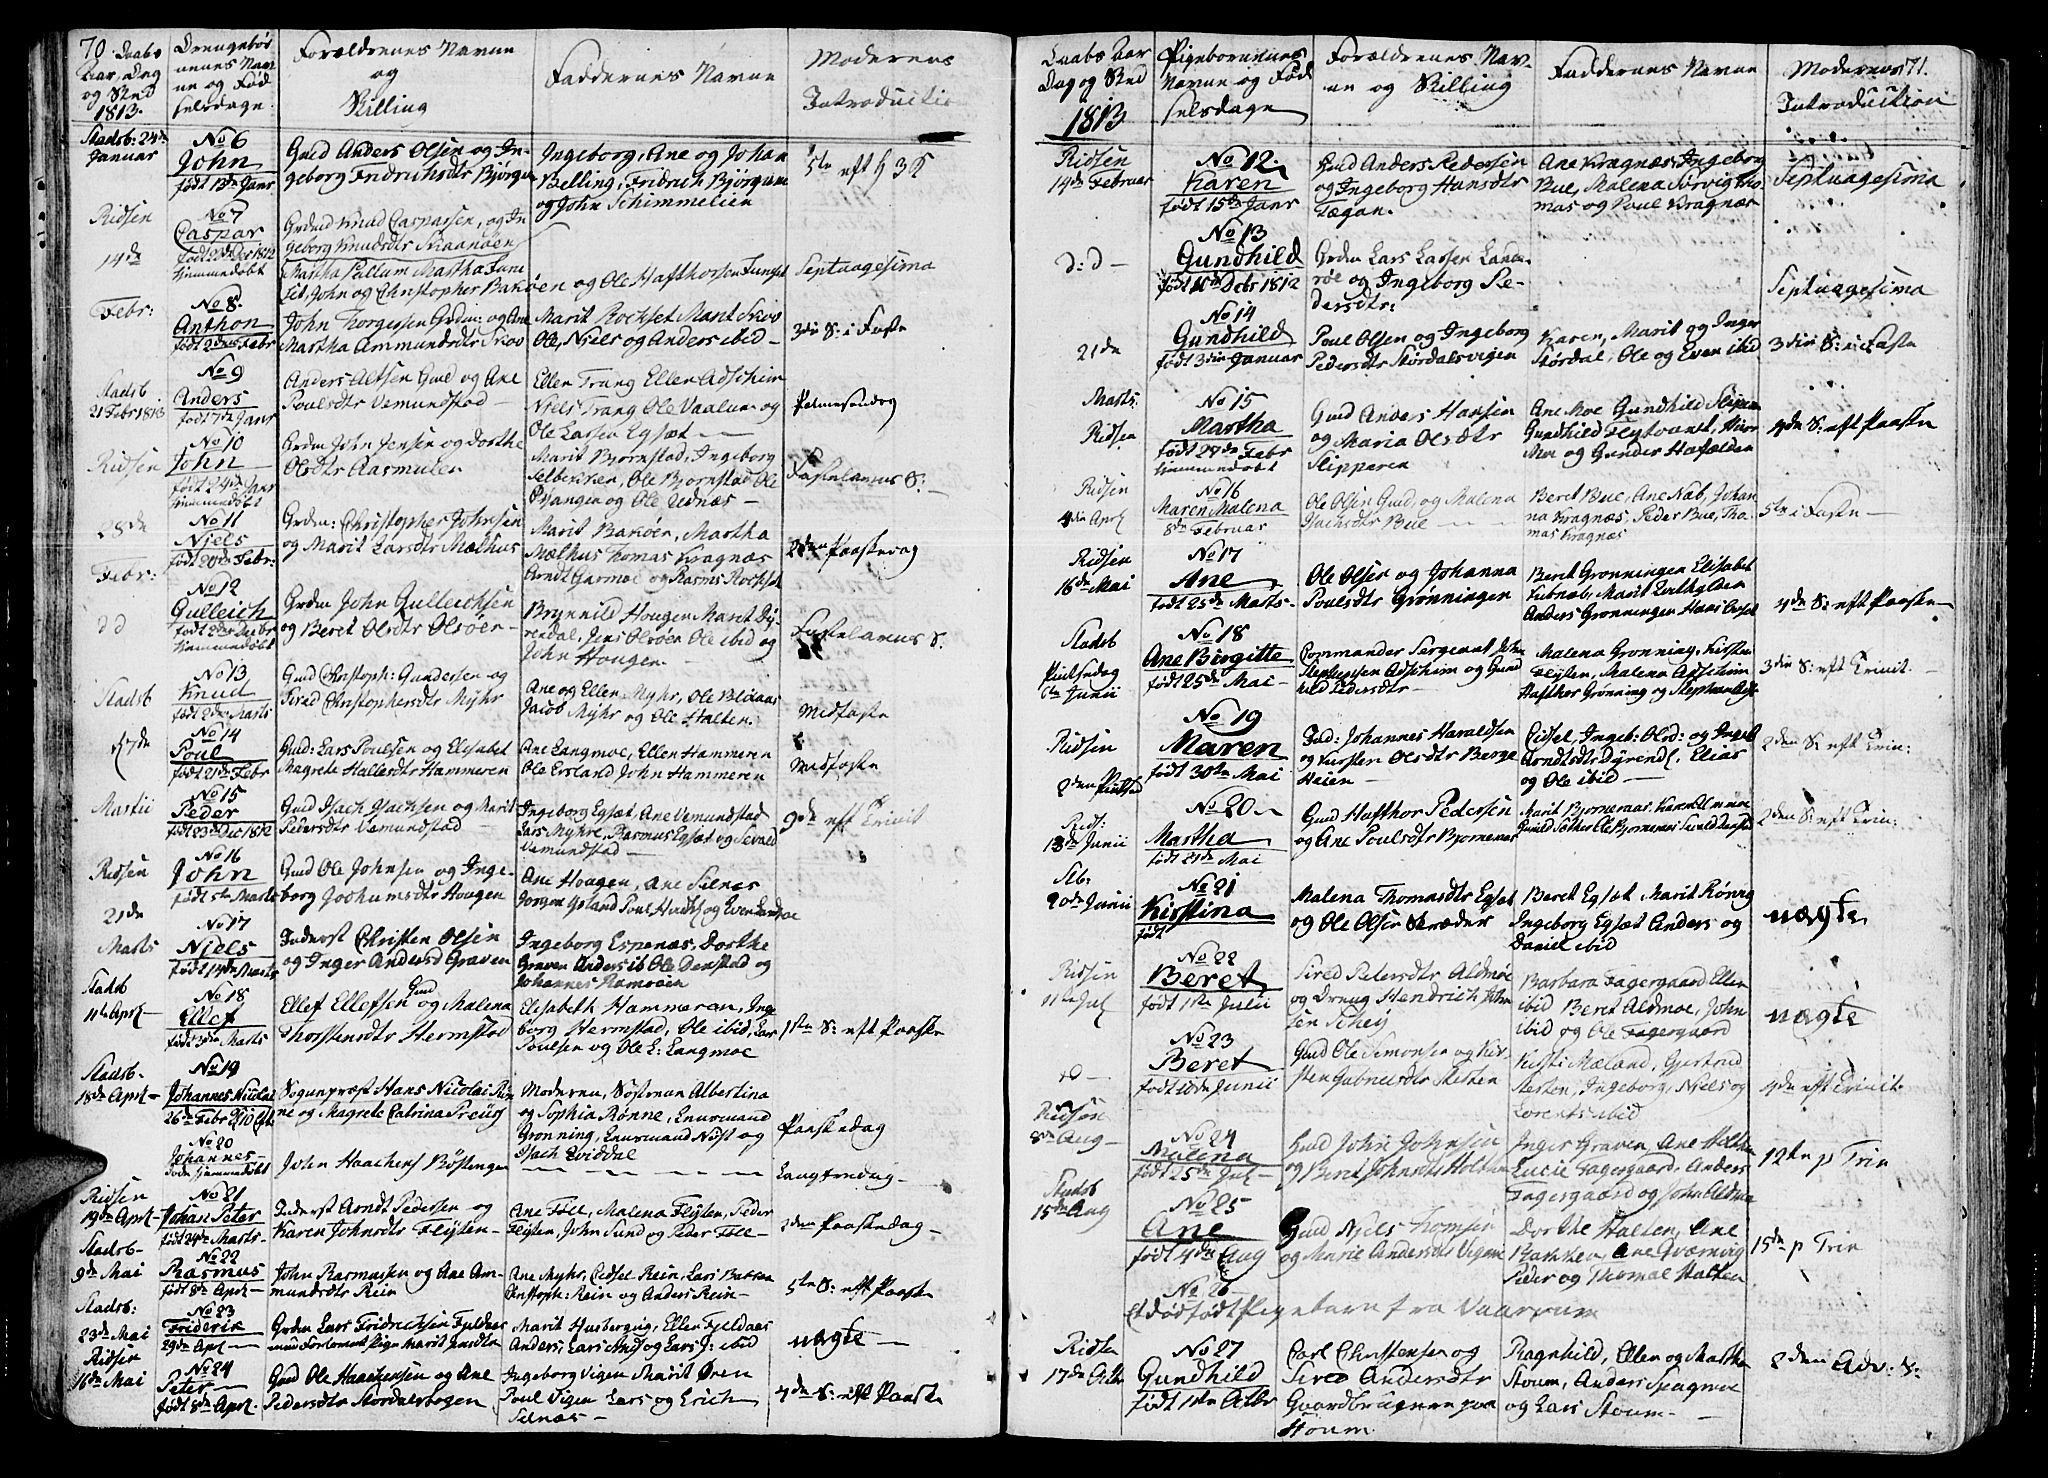 70. Daabs Aar, Dag og Sted 1813.
Drengebørnenes Navne og Fødselsdage.
Forældrenes Navne og Stilling
Faddernes Navne
Moderens Introductio
Stadsb: 24de Januar
No 6
John
født 13de Janr
Gmd Anders Olsen og Ingeborg Fridrichsdtr Bjørgen
Ingeborg, Ane og Johan Belling, Fridrich Bjørgum og John Schimmelien
5te eft H 3 K
Ridsen 14de Febr:
No 7
Caspar
hjemmedøbt
Grdmd Knud Caspersen, og Ingeborg Knudsdtr Skaanøen
Martha Fun
set, John og Christopher Bakøen og Ole Hafthorsen Funset
Septuagesima
No 8.
Anthon
født 2den Febr
John Torgersen Grdm: og Ane Martha Ammundsdtr Skov
Marit Rockset Marit Skov
Ole, Niels og Anders ibid –
3die S: i Faste
Stadsb 21 Febr 1813
No 9
Anders
født 7de Janr
Anders Altsen Gmd og Ane Poulsdtr Vemundstad –
Ellen Trang Ellen Adschim
Niels Trang Ole Vaalun og
Ole Larsen Egsæt –
Palmesøndag
Ridsen 28de Febr:
No 10
John
født 24de Janr
hjemmedøbt
Grdm John Jensen og Dorthe Olsdtr Aasmulen
Marit Bjørnstad, Ingeborg
Selbekken, Ole Bjørnstad Ole
Vangen og Ole Udnæs –
Fastelavns S: –
No 11
Niels
født 20de Febr:
Grdm: Christopher Johnsen og Marit Larsdtr Mælhus
Marit Bakøen, Martha
Mælhus Thomas Kragnæs
Arndt Garmoe og Rasms Rockset
2den Paaskedag
d d
No 12
Gulleich
hjemmedøbt
Grdm John Gulleichsen og Beret Olsdtr Olsøen –
Brynnild Hougen Marit Dyrendal, Jens Olsøen Ole ibid og
John Hougen –
Fastelavns S.
Stadsb 17de Martii
No 13
Knud
født 2den Marts
Gmd Christoph: Gundersen og Sired Christophersdtr Myhr
Ane og Ellen Myhr, Ole Bldaas
Jacob Myhr og Ole Halten.
Midfaste
No 14
Poul
født 21de Febr
Gmd: Lars Poulsen og Elisabet Magrete Hallesdtr Hammeren
Ane Langmoe, Ellen Hammeren
Ole Ersland John Hammeren
Midfaste
No 15
Peder
født 23de Dec 1812
Gmd Isach Isachsen og Marit Pedersdtr Vemundstad –
Ingeborg Egsæt, Ane Vemundstad
Lars Myhre, Rasmus Egsæt og Sevald
Vemundstad –
9de eft Trinit
Ridsen 21de Marts
No 16
John
født 5te Marts
Gmd Ole Johnsen og Ingeborg Jochumsdtr Hougen
Ane Hougen, Ane Selnes
Jørgen Ysland Poul
No 17
Niels
født 14de Marts
Inderst Christen Olsen og Inger Andersd Graven
Ingeborg Espenæs, Dorthe
Graven Anders ib Ole Denstad og
Johannes Ramsøen
Stadsb 11te Apr –
No 18
Ellef
Ellef Ellefsen Gmd og Malena Thorstensdtr Hermstad
Elisabeth Hammeren, Ingeborg Hermstad, Ole ibid, Lars
Poulsen og Ole L: Langmoe
1ste S: eft Paaske
Stadsb. 18de Apr –
No 19
Johannes Nicolai
26de Febr
Sognepræst Hans Nicolai Rønne og Magrete Catrina
Moderen, Søstrene Albertina
og Sophia Rønne, Lensmand
Grønning, Lensmand Nøst og
Isach Qviddal
Paaskedag
No 20
Johannes –
hjemmedøbt
John Haachens Røstengen
Langfredag –
Ridsen 19de Apr –
No 21
Johan Peter
født 24de Marts –
Inderst Arndt Pedersen og Karen Johnsdtr Flyten –
Ane Föll, Malena Flyten, Peder
Flyten, John Sund og Peder Föll –
2den Paaskedag –
Stadsb – 9de Mai
No 22
Rasmus
født 8de Apr –
John Rasmussen og Ane Ammundsdtr Rein
Ane Myhr, Cidsel Rein, Lars Bakken
Christoph: Rein og Anders Rein –
5te S: eft Paaske
Stadsb: 23de Mai
No 23
Friderik
29de Apr –
Grdm Lars Fridrichsen Fjeldaas
Marit Husbergvig, Ellen Fjeldaas
Anders, Lars
ibid
nægte –
Ridsen 16de Mai
No 24
Peter –
født 8de Apr.
Gmd Ole Haachensen og Ane Pedersdtr Stordalsbogen
Ingeborg Vigen Marit Øren
Poul Vigen Lars og Erich
Selnæs –
4de S: eft Paaske
Daabs Aar Dag og Sted 1813
Pigebørnenes Navne og Fødselsdage
Forældrenes Navne og Stilling
Faddernes Navne
Moderens 71.
Introduction
Ridsen 14de Februar
No 12.
Karen
født 15de Janr
Gmd Anders Pedersen og Ingeborg Hansdtr Tægan.
Ane Kragnæs, Ingeborg
Bue, Malena Sørvig Thomas og Poul Kragnæs
Septuagesima
d: d –
No 13
Gundhild
Grdm Lars Larsen
og Ingeborg Pedersdtr:
Septuagesima
21de
No 14
Gundhild
født 3die Januar
Poul Olsen og Ingeborg Pedersdtr Størdalsvigen
Karen, Marit og Inger
Størdal, Ole og Even ibid
3die S: i Faste
Marts: Ridsen
No 15
Martha
født 27de Febr
hjemmedøbt
Gmd Anders Hansen og Maria Olsdtr Slipperen
Ane Moe Gundhild Slipper
Gundhild
Moe og Gunder
4de S: eft Paaske
Ridsen 4de Apr
No 16
Maren Malena
8de Februar
Ole Olsen Gmd og Malena Isachsdtr Bue –
Beret Bue, Ane Nab, Johanna Kragnæs, Peder Bue, Thomas Kragnæs
5te i Faste –
Ridsen 16de Mai
No 17
Ane
født 25de Marts –
Ole Olsen og Johanna Poulsdtr Grønningen
Beret Grønningen Elisabet
Anders Grønningen
4de S: eft Paaske –
Stadsb Pintsedag 6te Junii
No 18
Ane Birgitte
født 25de Mai –
Commander Sergeant John Stephensen Adschim og Gundhild Pedersdtr –
Malena Grønning, Kirsten
Flyten, Malena Adschim
Hafthor Grønning og Stephan
3die S: eft Trinit.
Ridsen 2den Pintsed
No 19
Maren
født 30te Mai
Ind: Johannes Haraldsen og Kirsten Olsdtr Berge Heien –
Cidsel, Ingeb: Olsd: og Ingeb
Arndtsdtr Dyrendl, Elias
og Ole ibid –
2den S: eft Trin:
Rids: 13de Junii
No 20 –
Martha
født 21de Mai
Gmd Hafthor Pedersen og Ane Poulsdtr Bjørneraas
Marit Bjørneraas
2den S: eft Trin:
Stb. 20de Junii
No 21
Kirstina
født
Malena Thomasdtr Egset og Ole Olsen Skræder
Beret Egset Marit Rønning
Ingeborg Egsæt Anders og
Daniel ibid
nægte
Ridsen 11te Jul
No 22
Beret
født 1ste Julii
Sired Petersdtr Aldmoe og Dreng Hendrich
Barbara Fagergaard Ellen
ibid Beret Aldmoe, John
ibid og Ole Fagergaard
nægte
d –
No 23
Beret
født Junii
Gmd Ole Simonsen og Kirsten Gabrielsdtr Resten
Kirsti Mæland, Gjertrud
Resten, Ingeborg, Niels og
Lorents ibid
4de eft Trinit
Ridsen 8de Aug –
No 24
Malena
født 25de Jul –
Gmd John Johnsen og Beret Johnsdtr Holthen
Inger Graven, Ane Holthen
Lucie Fagergaard, Anders
Fagergaard og John Aldmoe
12te p Trin
Stadsb 15de Aug
No 25
Ane
født 4de Aug
Gmd Niels Thomsen og Marie Andersdtr Vigen
Dorthe Halten, Ane
Bakken Ane Qværnvig
Peder og Thomas Halten
15de p Trin
No 26
et dødfødt Pigebarn fra Vaarrum
Ridsen 17de Octbr
No 27
Gundhild
født 1ste Octbr
Carl Christensen og Sired Andersdtr Gaardbrugere paa Stoum
Ragnhild, Ellen og Martha
Stoum, Anders Skagmoe
og Lars Stoum –
2den Adv: S: